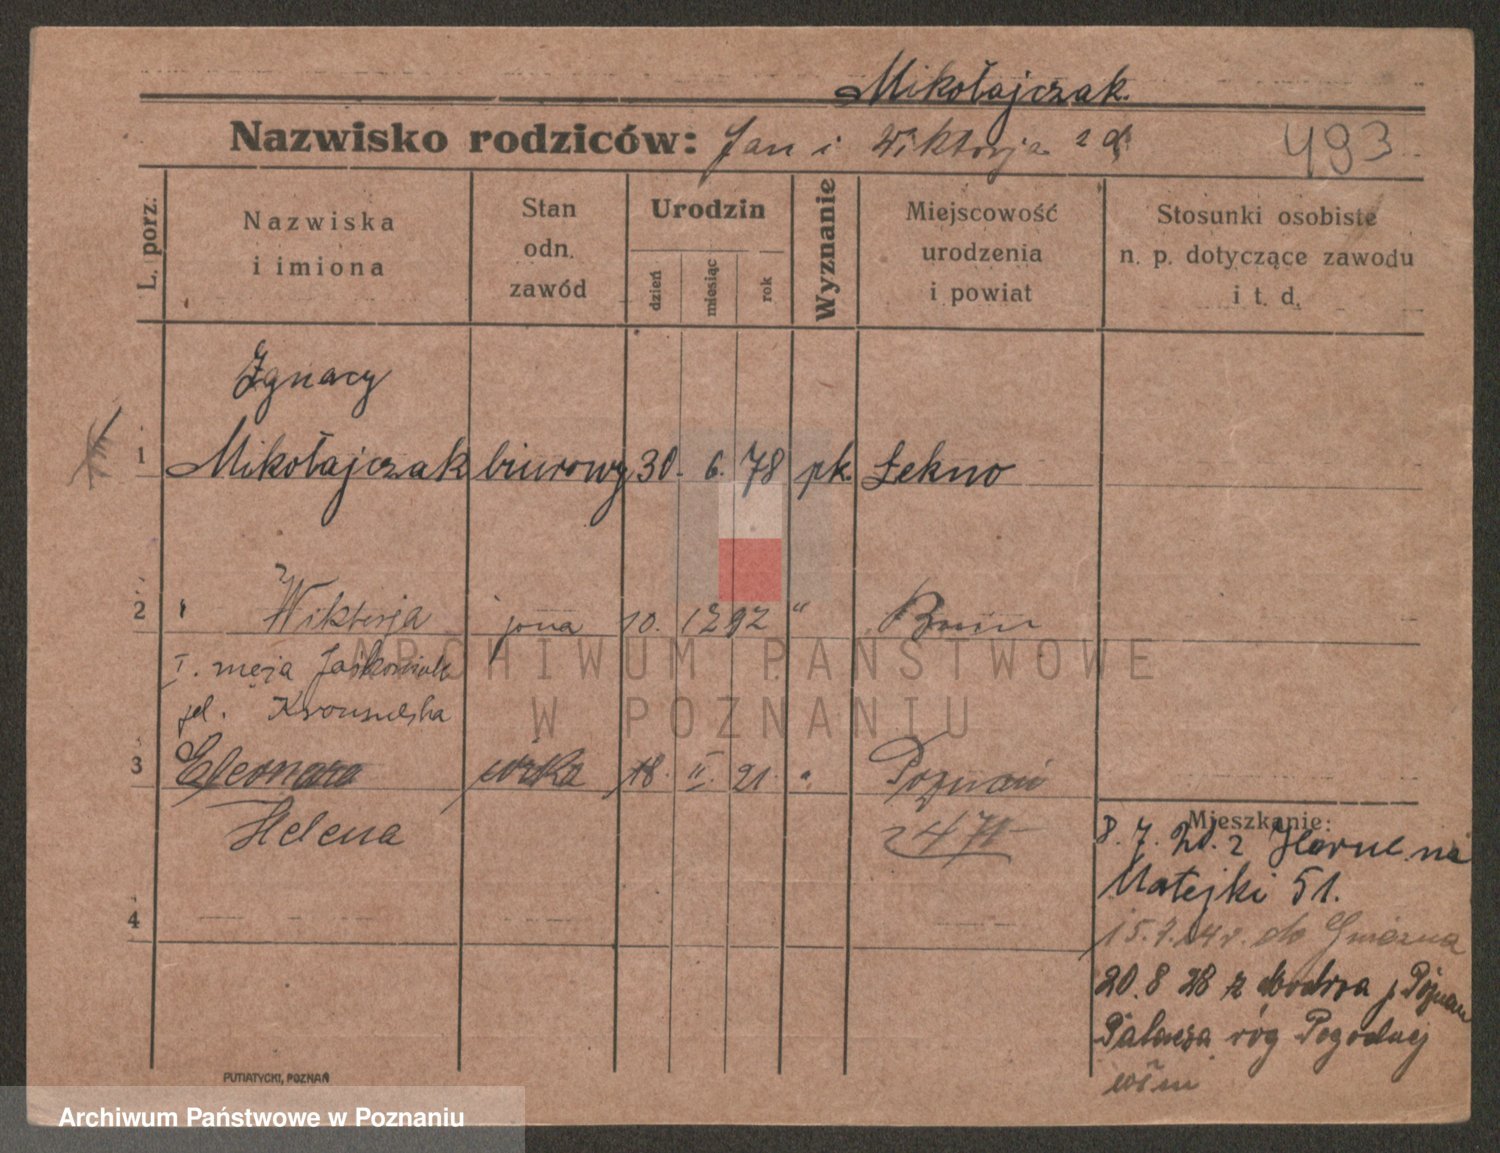 Mikołajczak
Nazwisko rodziców: Jan i Wiktorja z d.
493
L. porz.
Nazwiska
i imiona
Stan
odn.
zawód
Urodzin
dzień
miesiąc
rok
Wyznanie
Miejscowość
urodzenia
i powiat
Stosunki osobiste
n. p. dotyczące zawodu
i t. d.
Ignacy
1 Mikołajczak biurowy 30. 6. 78 pk. Łekno
2 " Wiktorja żona 10. 12 92 " Bnin
I. męża
3 Eleonora córka 18. II. 21. " Poznań
Helena
4
Mieszkanie:
8. 7. 20. z
Matejki 51.
do Gniezna
20. 8 28 z p. Poznań
Palacza róg Pogodnej
PUTIATYCKI, POZNAŃ
ARCHIWUM PAŃSTWOWE
W POZNANIU
Archiwum Państwowe w Poznaniu